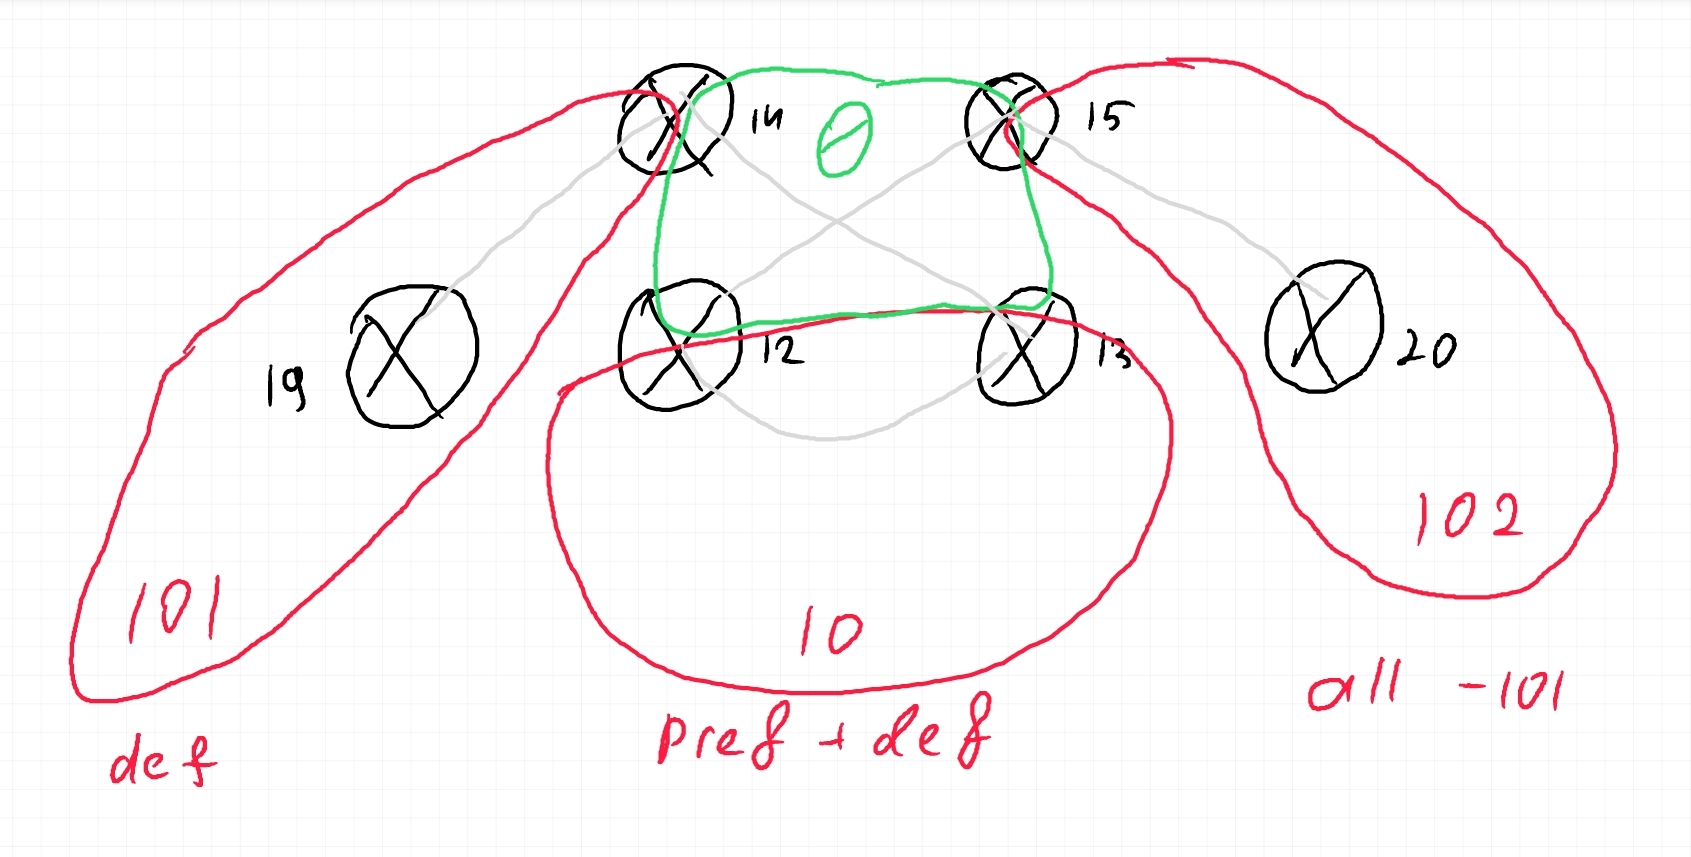 14
0
15
19
12
13
20
101
10
102
def
pref + def
all -101